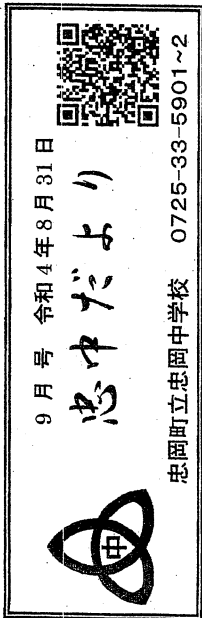 9月号 令和4年8月31日
忠中だより
忠岡町立忠岡中学校 0725-33-5901~2
中